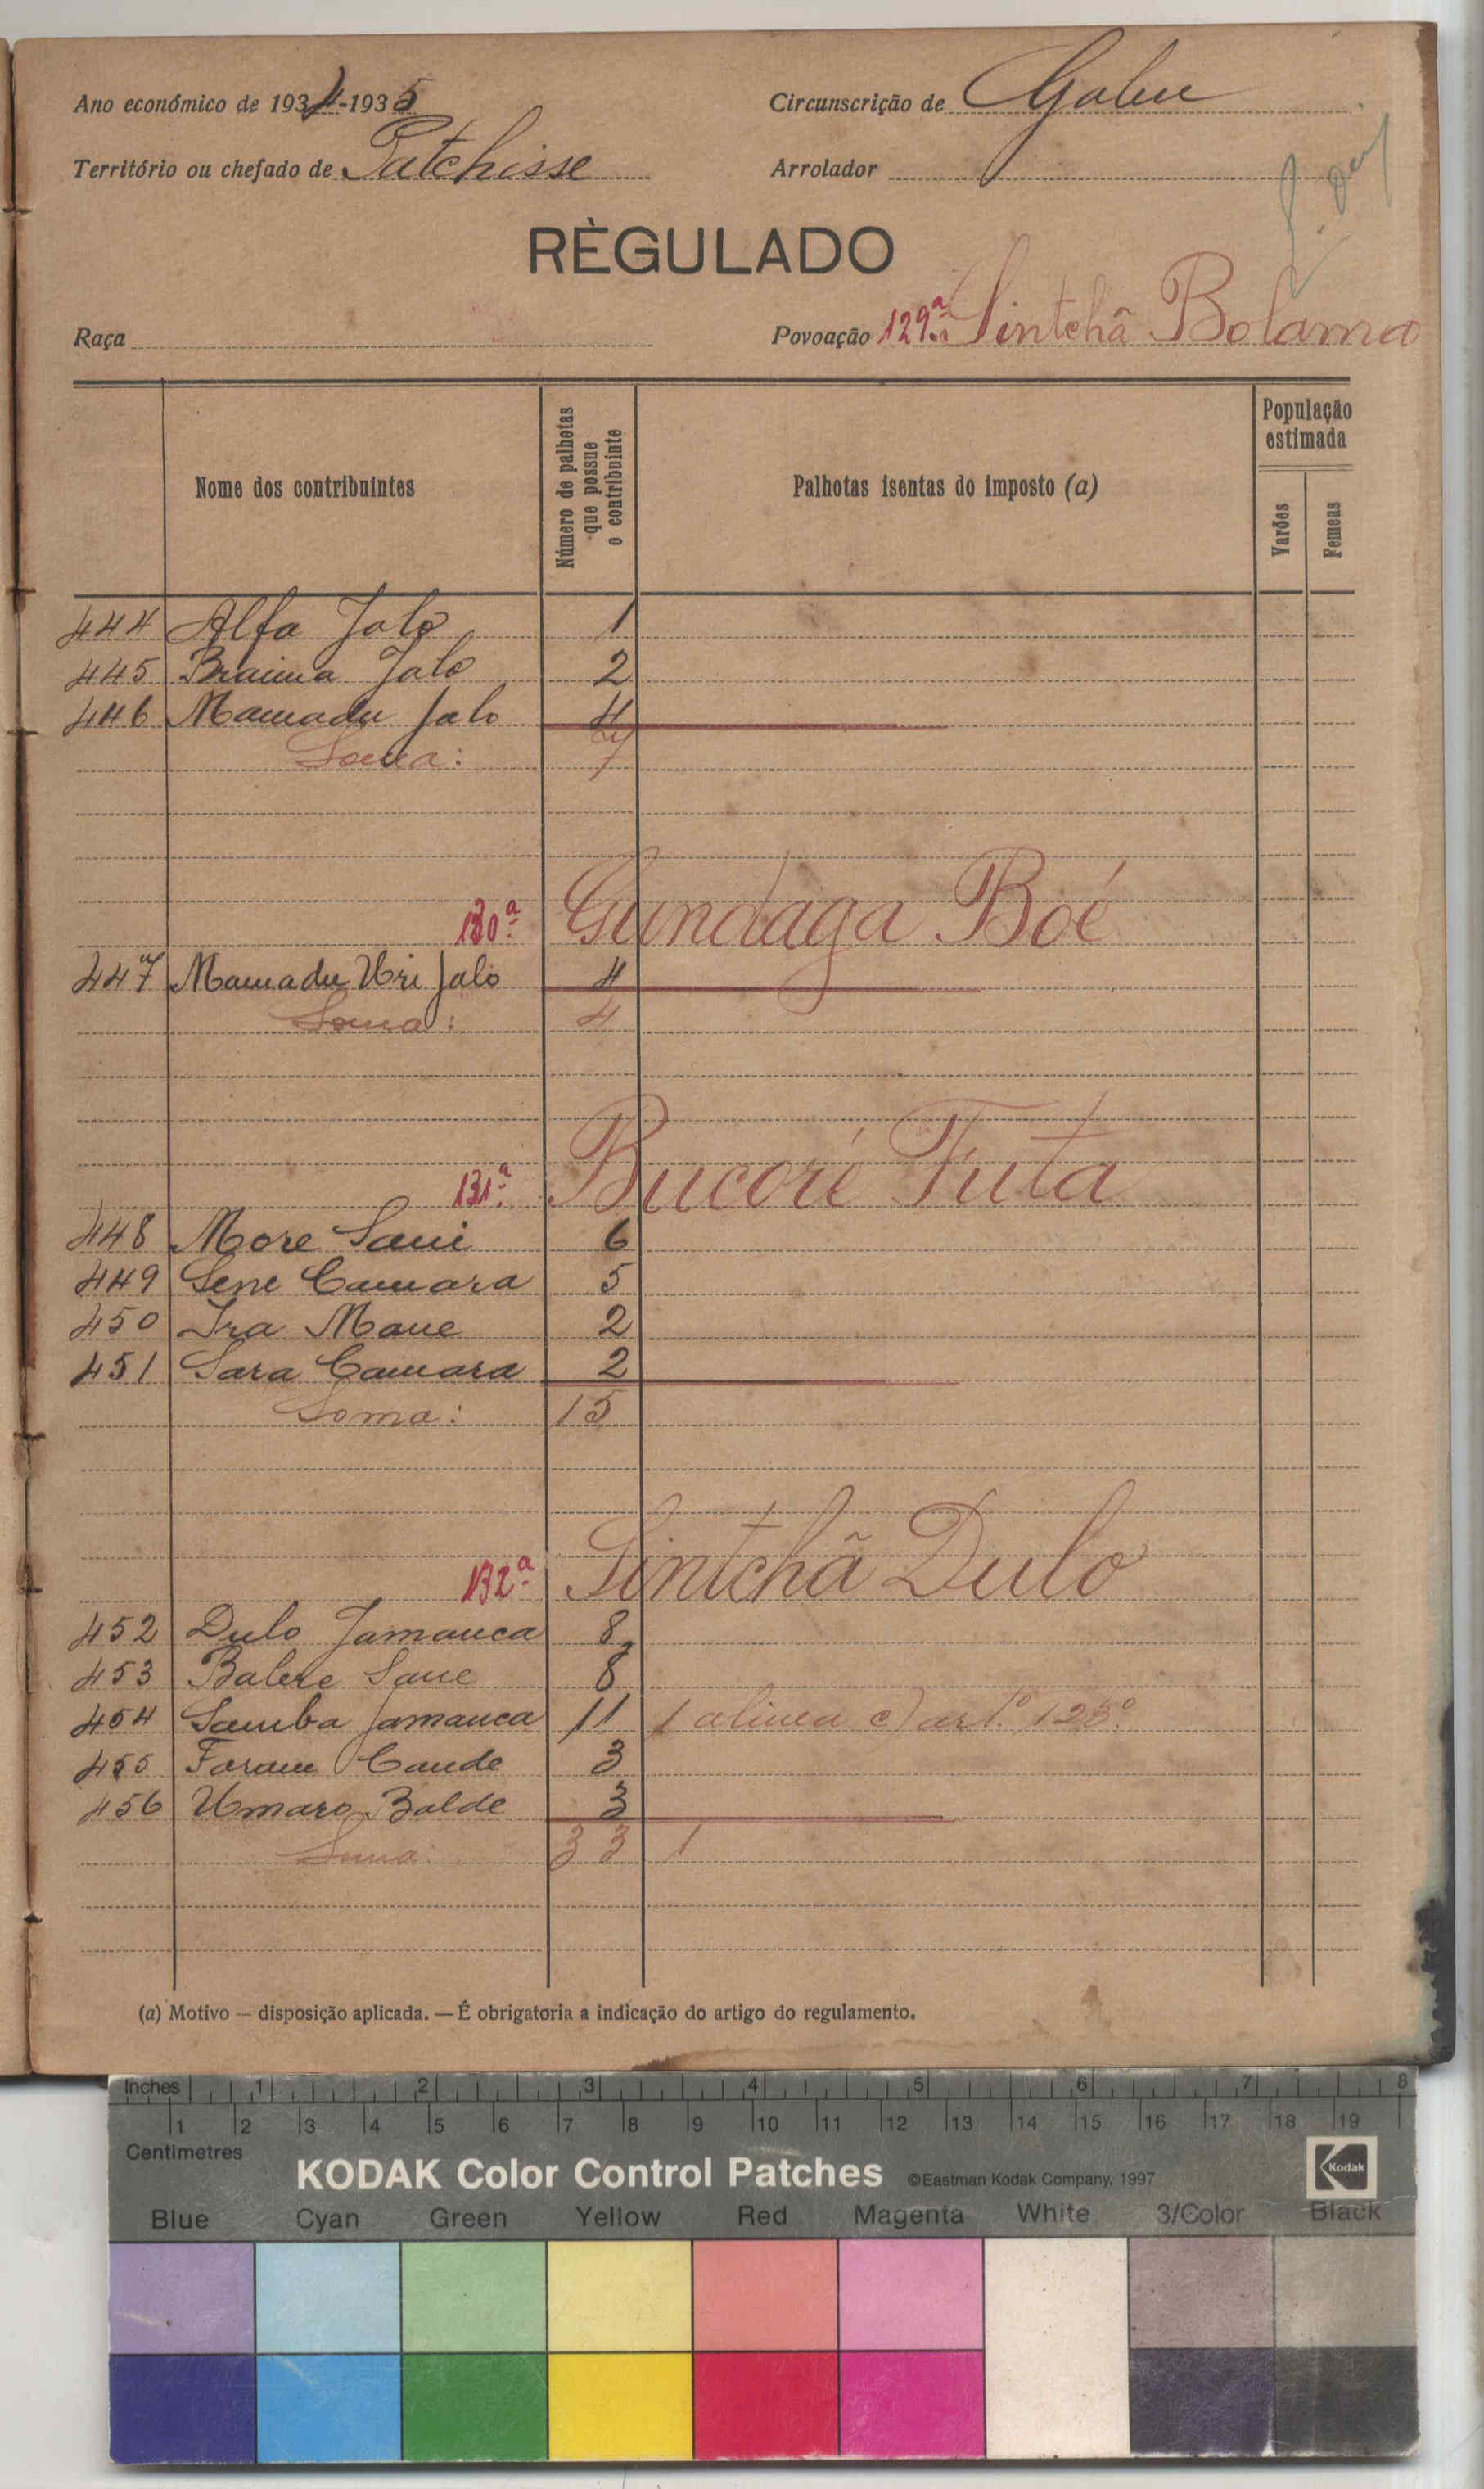 Ano económico de 1934-1935
Circunscrição de Gabu
Território ou chefado de Patchisse
Arrolador
RÈGULADO
Raça
Povoação 129.ª Sintchã Bolama
Nome dos contribuintes
Número de palhotas que possue o contribuinte
Palhotas isentas do imposto (a)
População estimada
Varões
Femeas
444 Alfa Jalo 1
445 Braima Jalo 2
446 Mamadu Jalo 4
Soma: 7
130.ª Gundaga Boé
447 Mamadu Uri Jalo 4
Soma: 4
131.ª Bucoré Futa
448 More Sani 6
449 Sene Camara 5
450 Ira Mane 2
451 Sara Camara 2
Soma: 15
132.ª Sintchã Dulo
452 Dulo Jamanca 8
453 Balere Sane 8
454 Samba Jamanca 11 1 alinea c) art.º 123º.
455 Faram Cande 3
456 Umaro Balde 3
Soma: 33 1
(a) Motivo — disposição aplicada. — É obrigatoria a indicação do artigo do regulamento.
Inches 1 2 3 4 5 6 7 8
1 2 3 4 5 6 7 8 9 10 11 12 13 14 15 16 17 18 19
Centimetres
KODAK Color Control Patches ©Eastman Kodak Company, 1997 Kodak
Blue Cyan Green Yellow Red Magenta White 3/Color Black